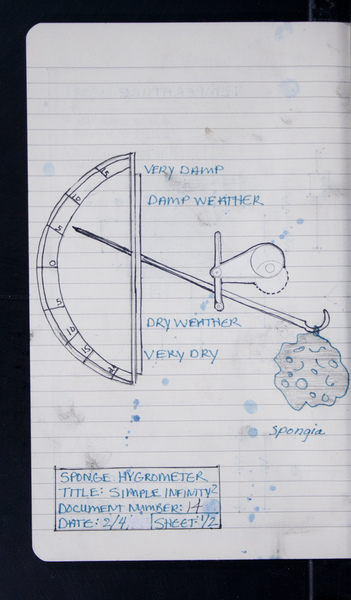 VERY DAMP
DAMP WEATHER
15
10
5
0
5
10
15
DRY WEATHER
VERY DRY
spongia
SPONGE HYGROMETER
TITLE: SIMPLE INFINITY²
DOCUMENT NUMBER: 14
DATE: 2/4 SHEET: 1/2